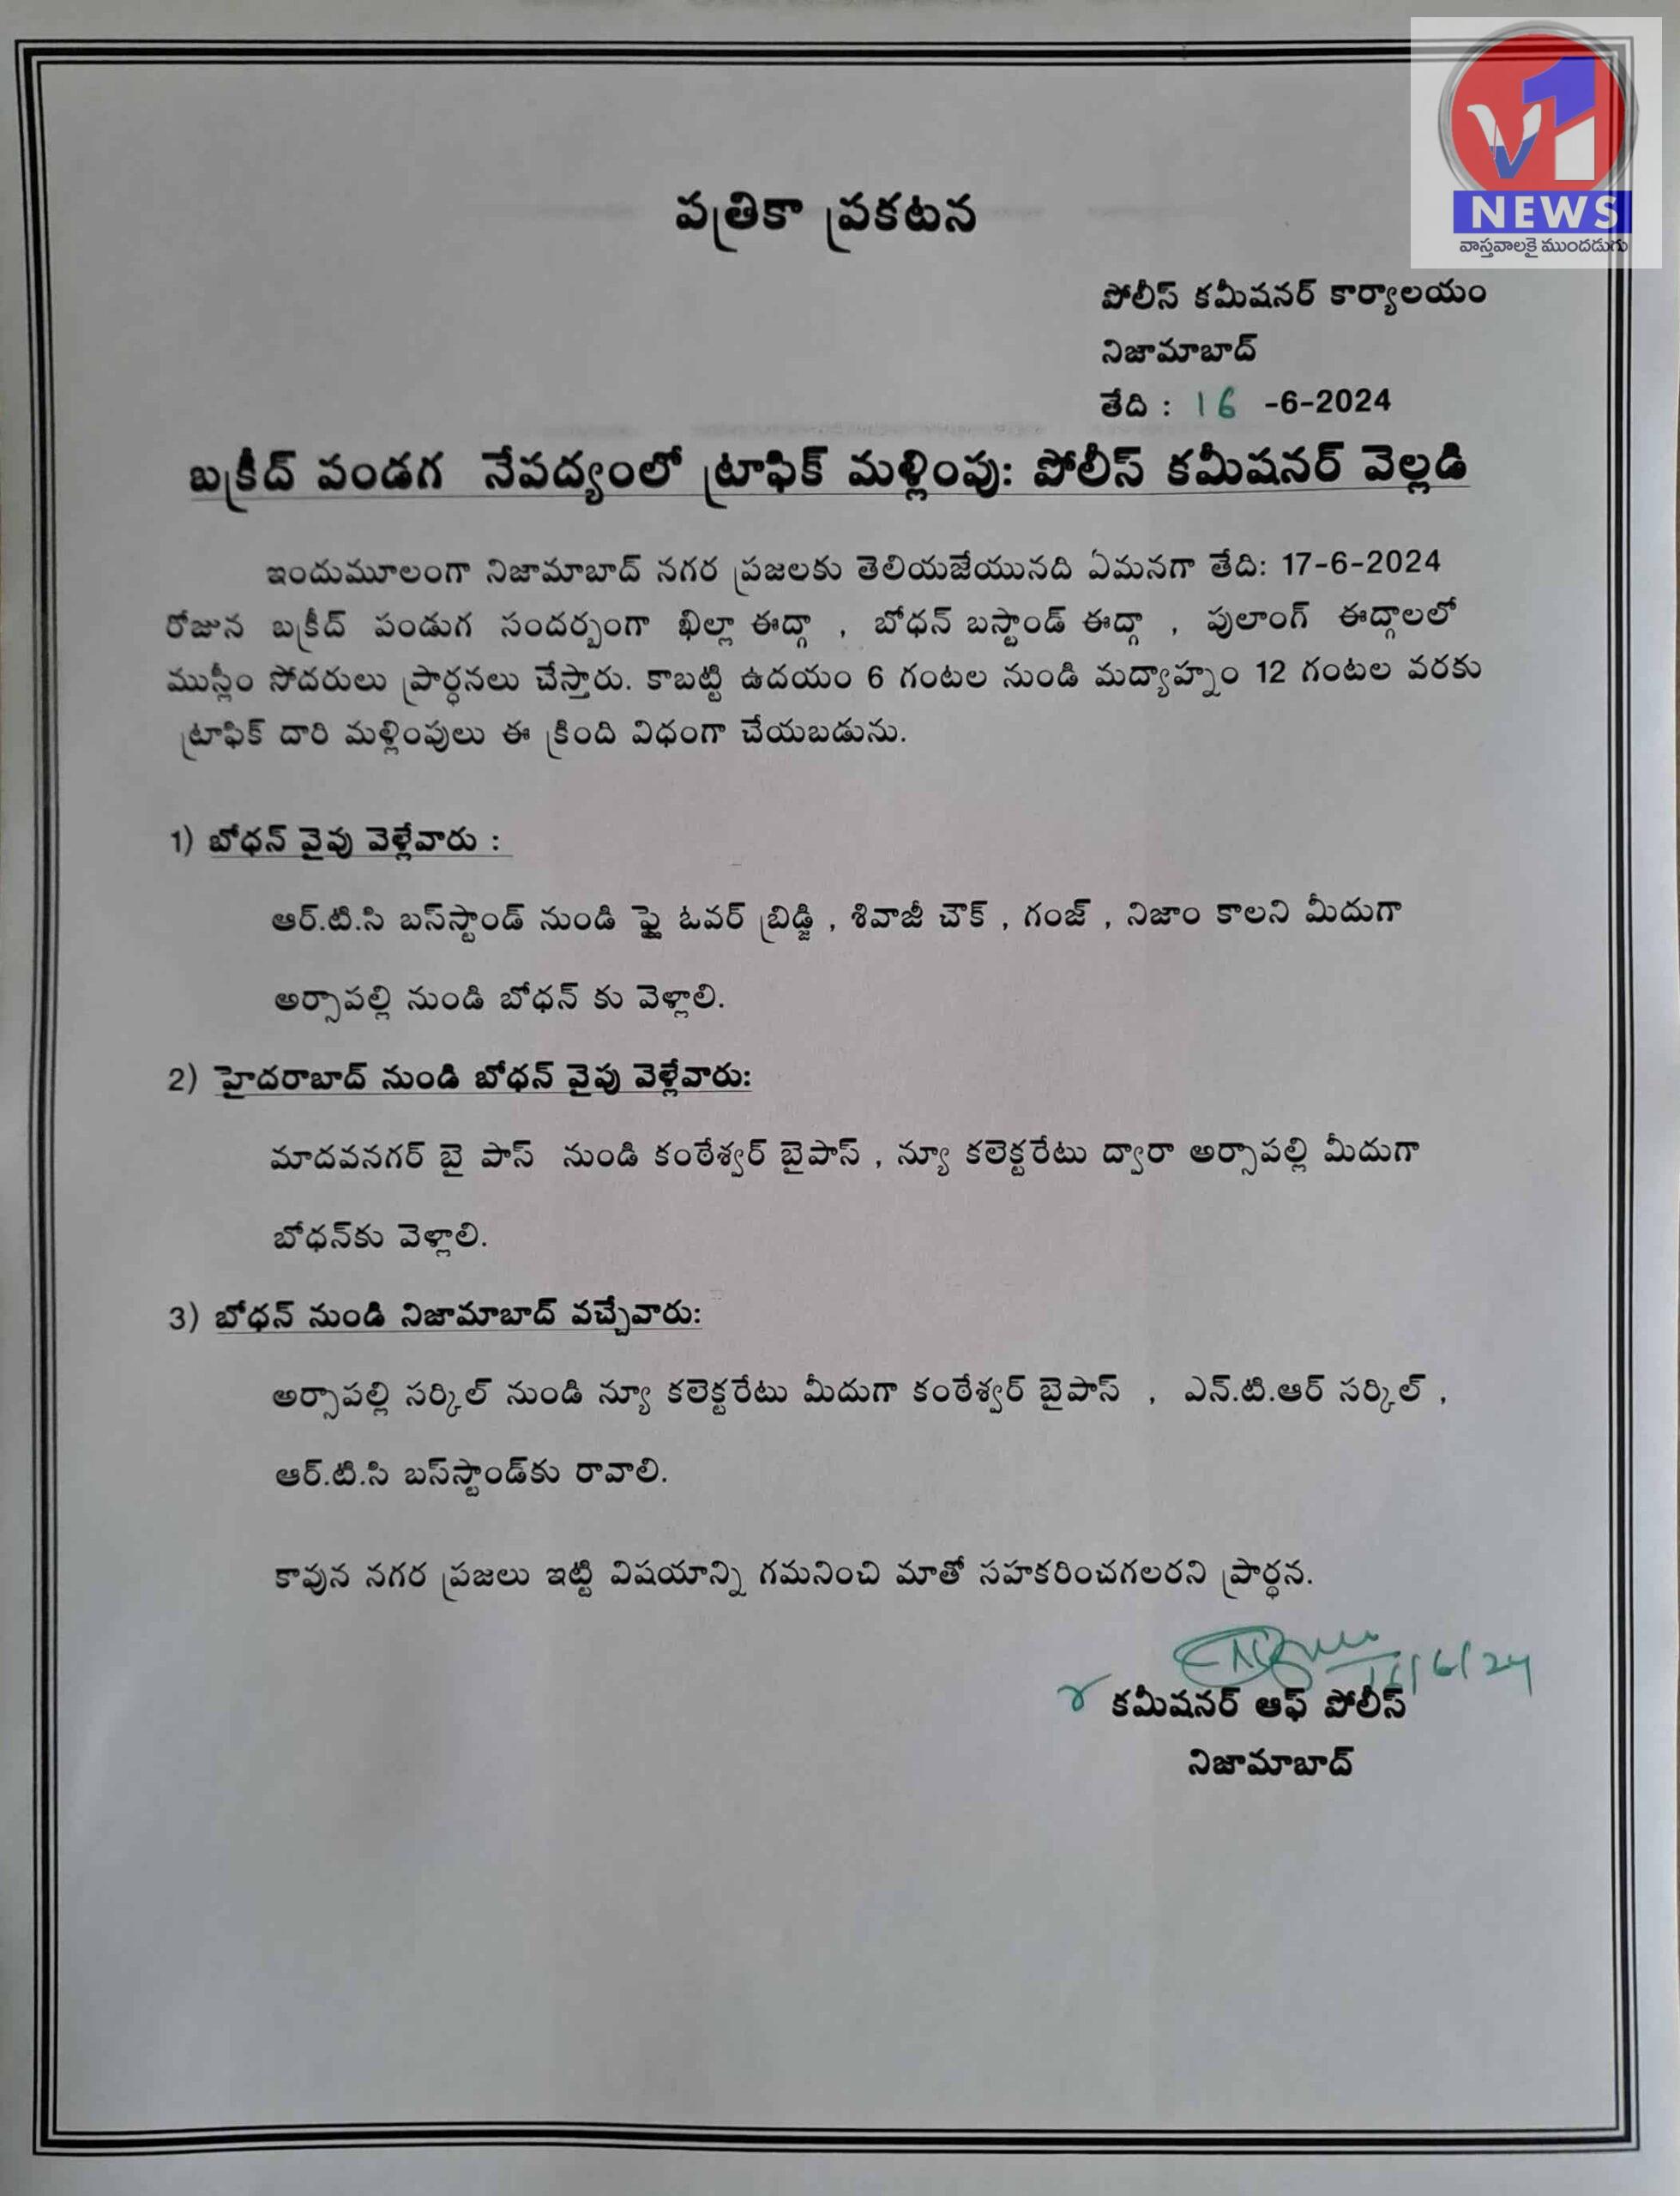 V1
NEWS
వాస్తవాలకై ముందడుగు
పత్రికా ప్రకటన
పోలీస్ కమీషనర్ కార్యాలయం
నిజామాబాద్
తేది : 16 -6-2024
బక్రీద్ పండగ నేపద్యంలో ట్రాఫిక్ మళ్లింపు: పోలీస్ కమీషనర్ వెల్లడి
ఇందుమూలంగా నిజామాబాద్ నగర ప్రజలకు తెలియజేయునది ఏమనగా తేది: 17-6-2024
రోజున బక్రీద్ పండుగ సందర్బంగా ఖిల్లా ఈద్గా , బోధన్ బస్టాండ్ ఈద్గా , పులాంగ్ ఈద్గాలలో
ముస్లీం సోదరులు ప్రార్ధనలు చేస్తారు. కాబట్టి ఉదయం 6 గంటల నుండి మద్యాహ్నం 12 గంటల వరకు
ట్రాఫిక్ దారి మళ్లింపులు ఈ క్రింది విధంగా చేయబడును.
1) బోధన్ వైపు వెళ్లేవారు :
ఆర్.టి.సి బస్‌స్టాండ్ నుండి ఫ్లై ఓవర్ బ్రిడ్జి , శివాజీ చౌక్ , గంజ్ , నిజాం కాలని మీదుగా
అర్సాపల్లి నుండి బోధన్ కు వెళ్లాలి.
2) హైదరాబాద్ నుండి బోధన్ వైపు వెళ్లేవారు:
మాదవనగర్ బై పాస్ నుండి కంఠేశ్వర్ బైపాస్ , న్యూ కలెక్టరేటు ద్వారా అర్సాపల్లి మీదుగా
బోధన్‌కు వెళ్లాలి.
3) బోధన్ నుండి నిజామాబాద్ వచ్చేవారు:
అర్సాపల్లి సర్కిల్ నుండి న్యూ కలెక్టరేటు మీదుగా కంఠేశ్వర్ బైపాస్ , ఎన్.టి.ఆర్ సర్కిల్ ,
ఆర్.టి.సి బస్‌స్టాండ్‌కు రావాలి.
కావున నగర ప్రజలు ఇట్టి విషయాన్ని గమనించి మాతో సహకరించగలరని ప్రార్థన.
16/6/24
కమీషనర్ ఆఫ్ పోలీస్
నిజామాబాద్